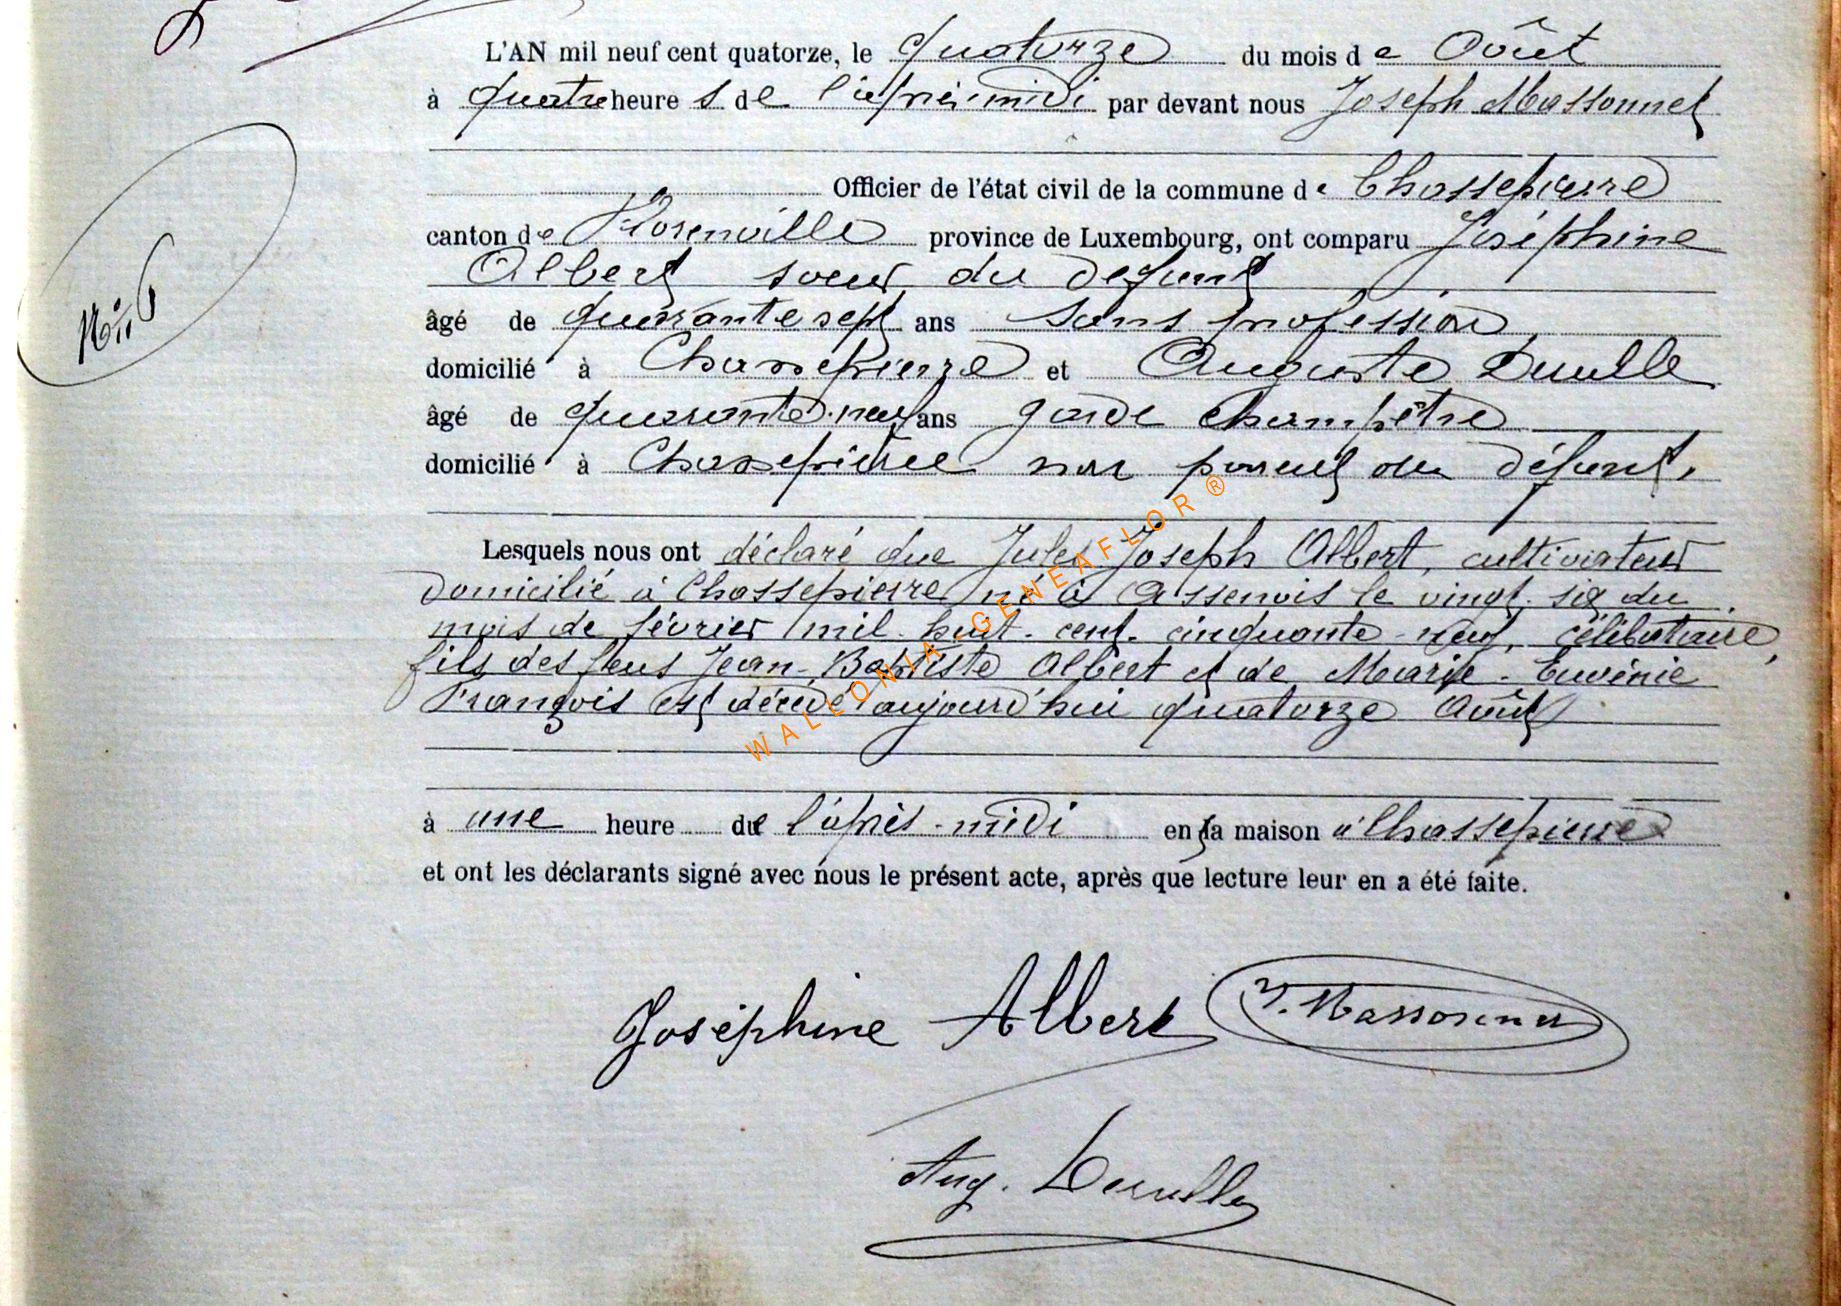 L'AN mil neuf cent quatorze, le quatorze du mois de Août
à quatre heures de l'après-midi par devant nous Joseph Massonnet
Officier de l'état civil de la commune de Chassepierre
canton de Florenville province de Luxembourg, ont comparu Joséphine
Albert soeur du defunt
âgé de quarante sept ans sans profession
domicilié à Chassepierre et Auguste
âgé de quarante-neuf ans garde champêtre
domicilié à Chassepierre non parent du défunt.
Lesquels nous ont déclaré que Jules Joseph Albert, cultivateur
domicilié à Chassepierre né à Assenois le vingt-six du
mois de février mil-huit-cent-cinquante-neuf, célibataire,
fils des feus Jean-Baptiste Albert et de Marie-Euvénie
François est décédé aujourd'hui quatorze Août
à une heure de l'après-midi en sa maison à Chassepierre
et ont les déclarants signé avec nous le présent acte, après que lecture leur en a été faite.
N° 6
WALLONIA-GENEAFLOR ®
Joséphine Albert J. Massonnet
Aug.